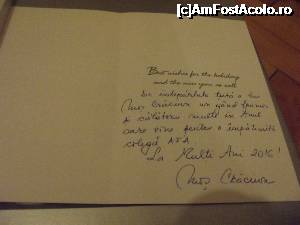 (c)AmFostAcolo.ro
Best wishes for the holiday
and the new year as well
Din îndepărtata țară a lui
Moș Crăciun un gând frumos
& călătorii în Anul
care vine pentru o împătimită
colegă AFA
La Mulți Ani 2016!
Moș Crăciun